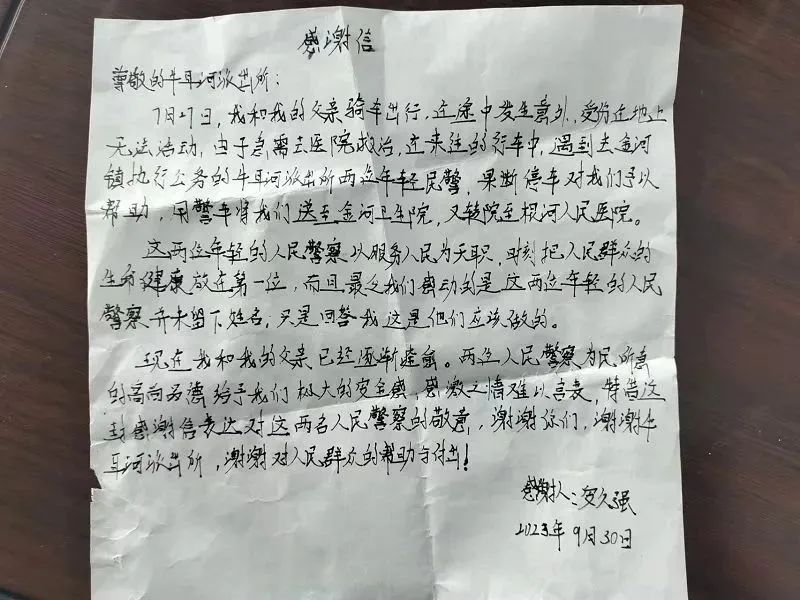 感谢信
尊敬的牛耳河派出所:
7月27日,我和我的父亲骑车出行,在途中发生意外,受伤在地上
无法活动,由于急需去医院救治,在来往的行车中,遇到去金河
镇执行公务的牛耳河派出所两位年轻民警,果断停车对我们予以
帮助,用警车将我们送至金河卫生院,又转院至根河人民医院。
这两位年轻的人民警察以服务人民为天职,时刻把人民群众的
生命健康放在第一位,而且最令我们感动的是这两位年轻的人民
警察并未留下姓名,只是回答我这是他们应该做的。
现在我和我的父亲已经逐渐康复。两位人民警察为民所急
的高尚品德给予我们极大的安全感,感激之情难以言表,特借这
封感谢信表达对这两名人民警察的敬意,谢谢你们,谢谢牛
耳河派出所,谢谢对人民群众的帮助与付出!
感谢人:久强
2023年9月30日